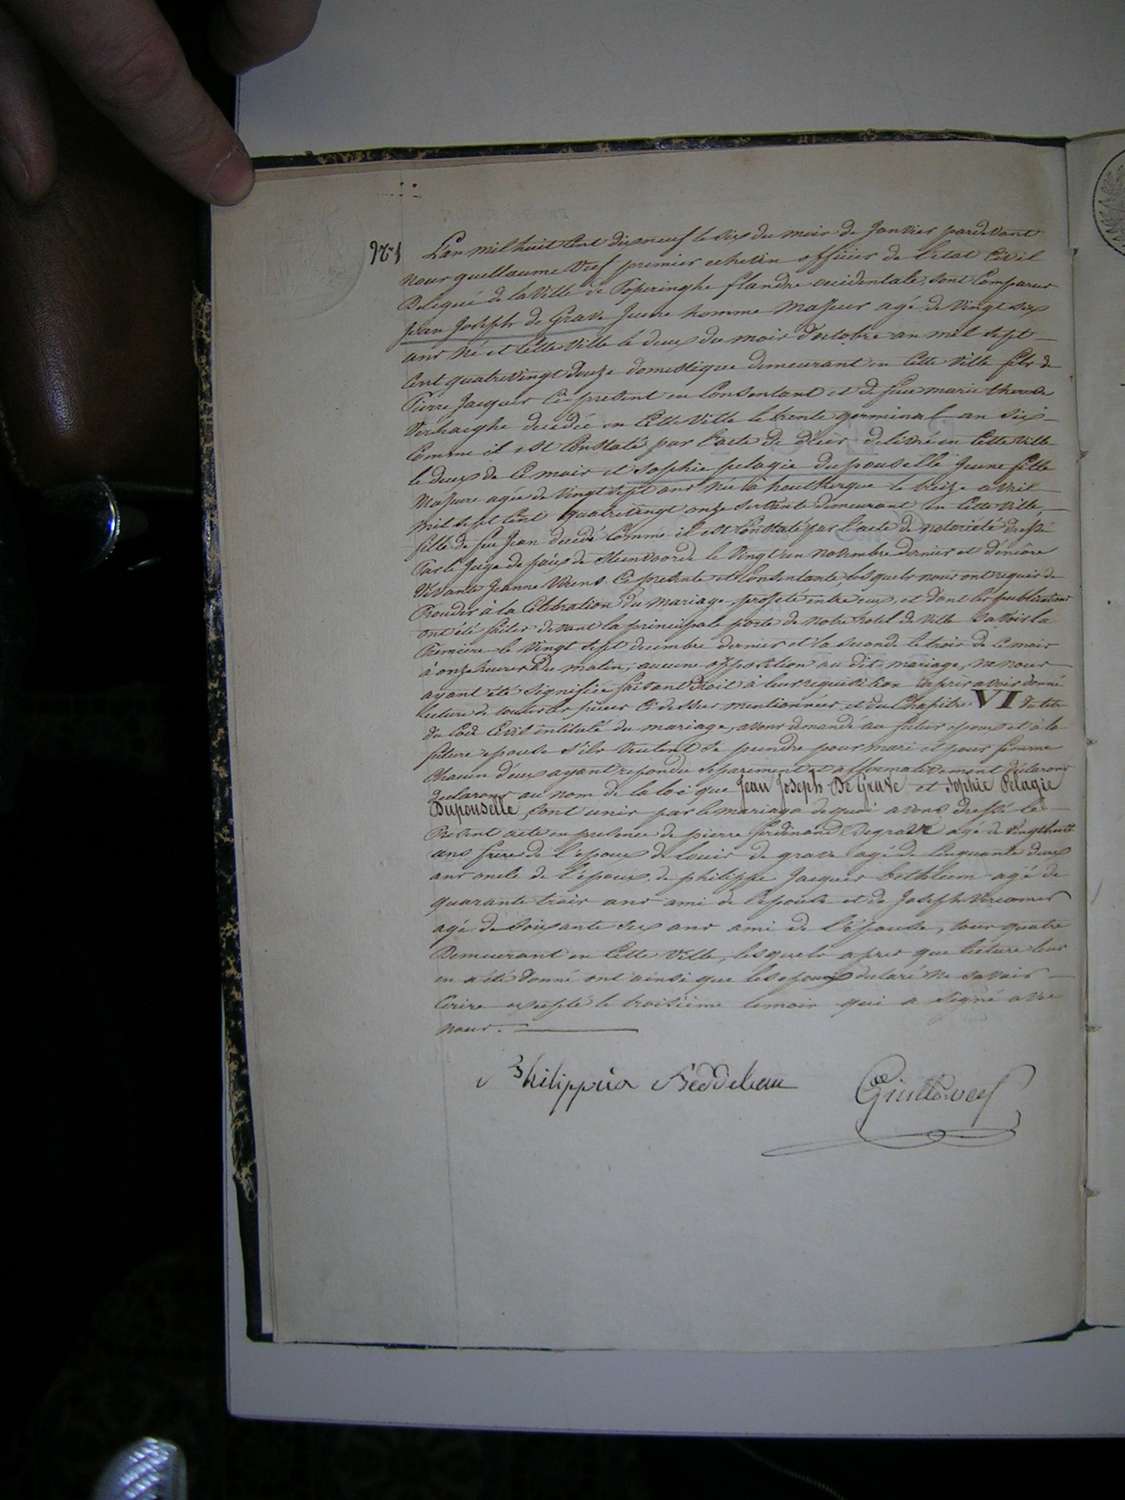 N° 1
L'an mil huit cent dix neuf le six du mois de Janvier pardevant
nous guillaume Veef premier echevin officier de l'etat Civil
Delegué de la Ville de Poperinghe flandre occidentale, sont Comparus
Jean Joseph de Grave Jeune homme Majeur agé de vingt six
ans né et cette Ville le deux du mois d'octobre an mil sept
Cent quatrevingt douze domestique demeurant en cette Ville fils de
Pierre Jacques ici present en Consentant et de feue marie therese
Verhaeghe decedée en Cette Ville le trente germinal an Six
Comme il est Constaté par l'acte de décès delivré en Cette Ville
le deux de Ce mois et Sophie pelagie Dupouselle Jeune fille
Majeure agée de vingt Sept ans née à houtkerque le treize avril
mil Sept Cent quatrevingt onze Servante demeurant en Cette Ville,
fille de feu Jean decedé Comme il est Constaté par l'acte de notorieté dressé
Par le Juge de paix de Steenvoorde le vingt un novembre dernier et d'encore
Vivante Jeanne Virens Ce presente et Consentante, lesquels nous ont requis de
Proceder a la Celebration du mariage projeté entre eux, et dont les publications
ont été faites devant la principale porte de notre hotel de Ville Savoir la
Premiere le Vingt Sept decembre dernier et la Seconde le trois de Ce mois
à onze heures du matin, aucune opposition au dit mariage, ne nous
ayant été Signifiée faisant droit à leur requisition après avoir donné
lecture de toutes les pièces Ci dessus mentionnées et du Chapitre VI du titre
du Code Civil intitulé du mariage, avons demandé au futur epoux et à la
future epouse S'ils veulent Se prendre pour mari et pour femme
Chacun d'eux ayant repondu Separement et affirmativement declarons
declarons au nom de la loi que Jean Joseph De Grave et Sophie Pelagie
Dupouselle Sont unis par le mariage de quoi avons dressé le
Present acte en presence de pierre ferdinand Degrave agé de vingthuit
ans frere de l'epoux de louis de grave agé de Cinquante deux
ans oncle de l'époux, de philippe Jacques bethleem agé de
quarante trois ans ami de l'epouse et de Joseph
agé de Soixante Six ans ami de l'épouse, tous quatre
Demeurant en Cette Ville, lesquels apres que lecture leur
en a été donné ont ainsi que les epoux declaré ne Savoir
Ecrire excepté le troisième temoin qui a Signé avec
nous.
Philippus Beddeleem
Guille Veef